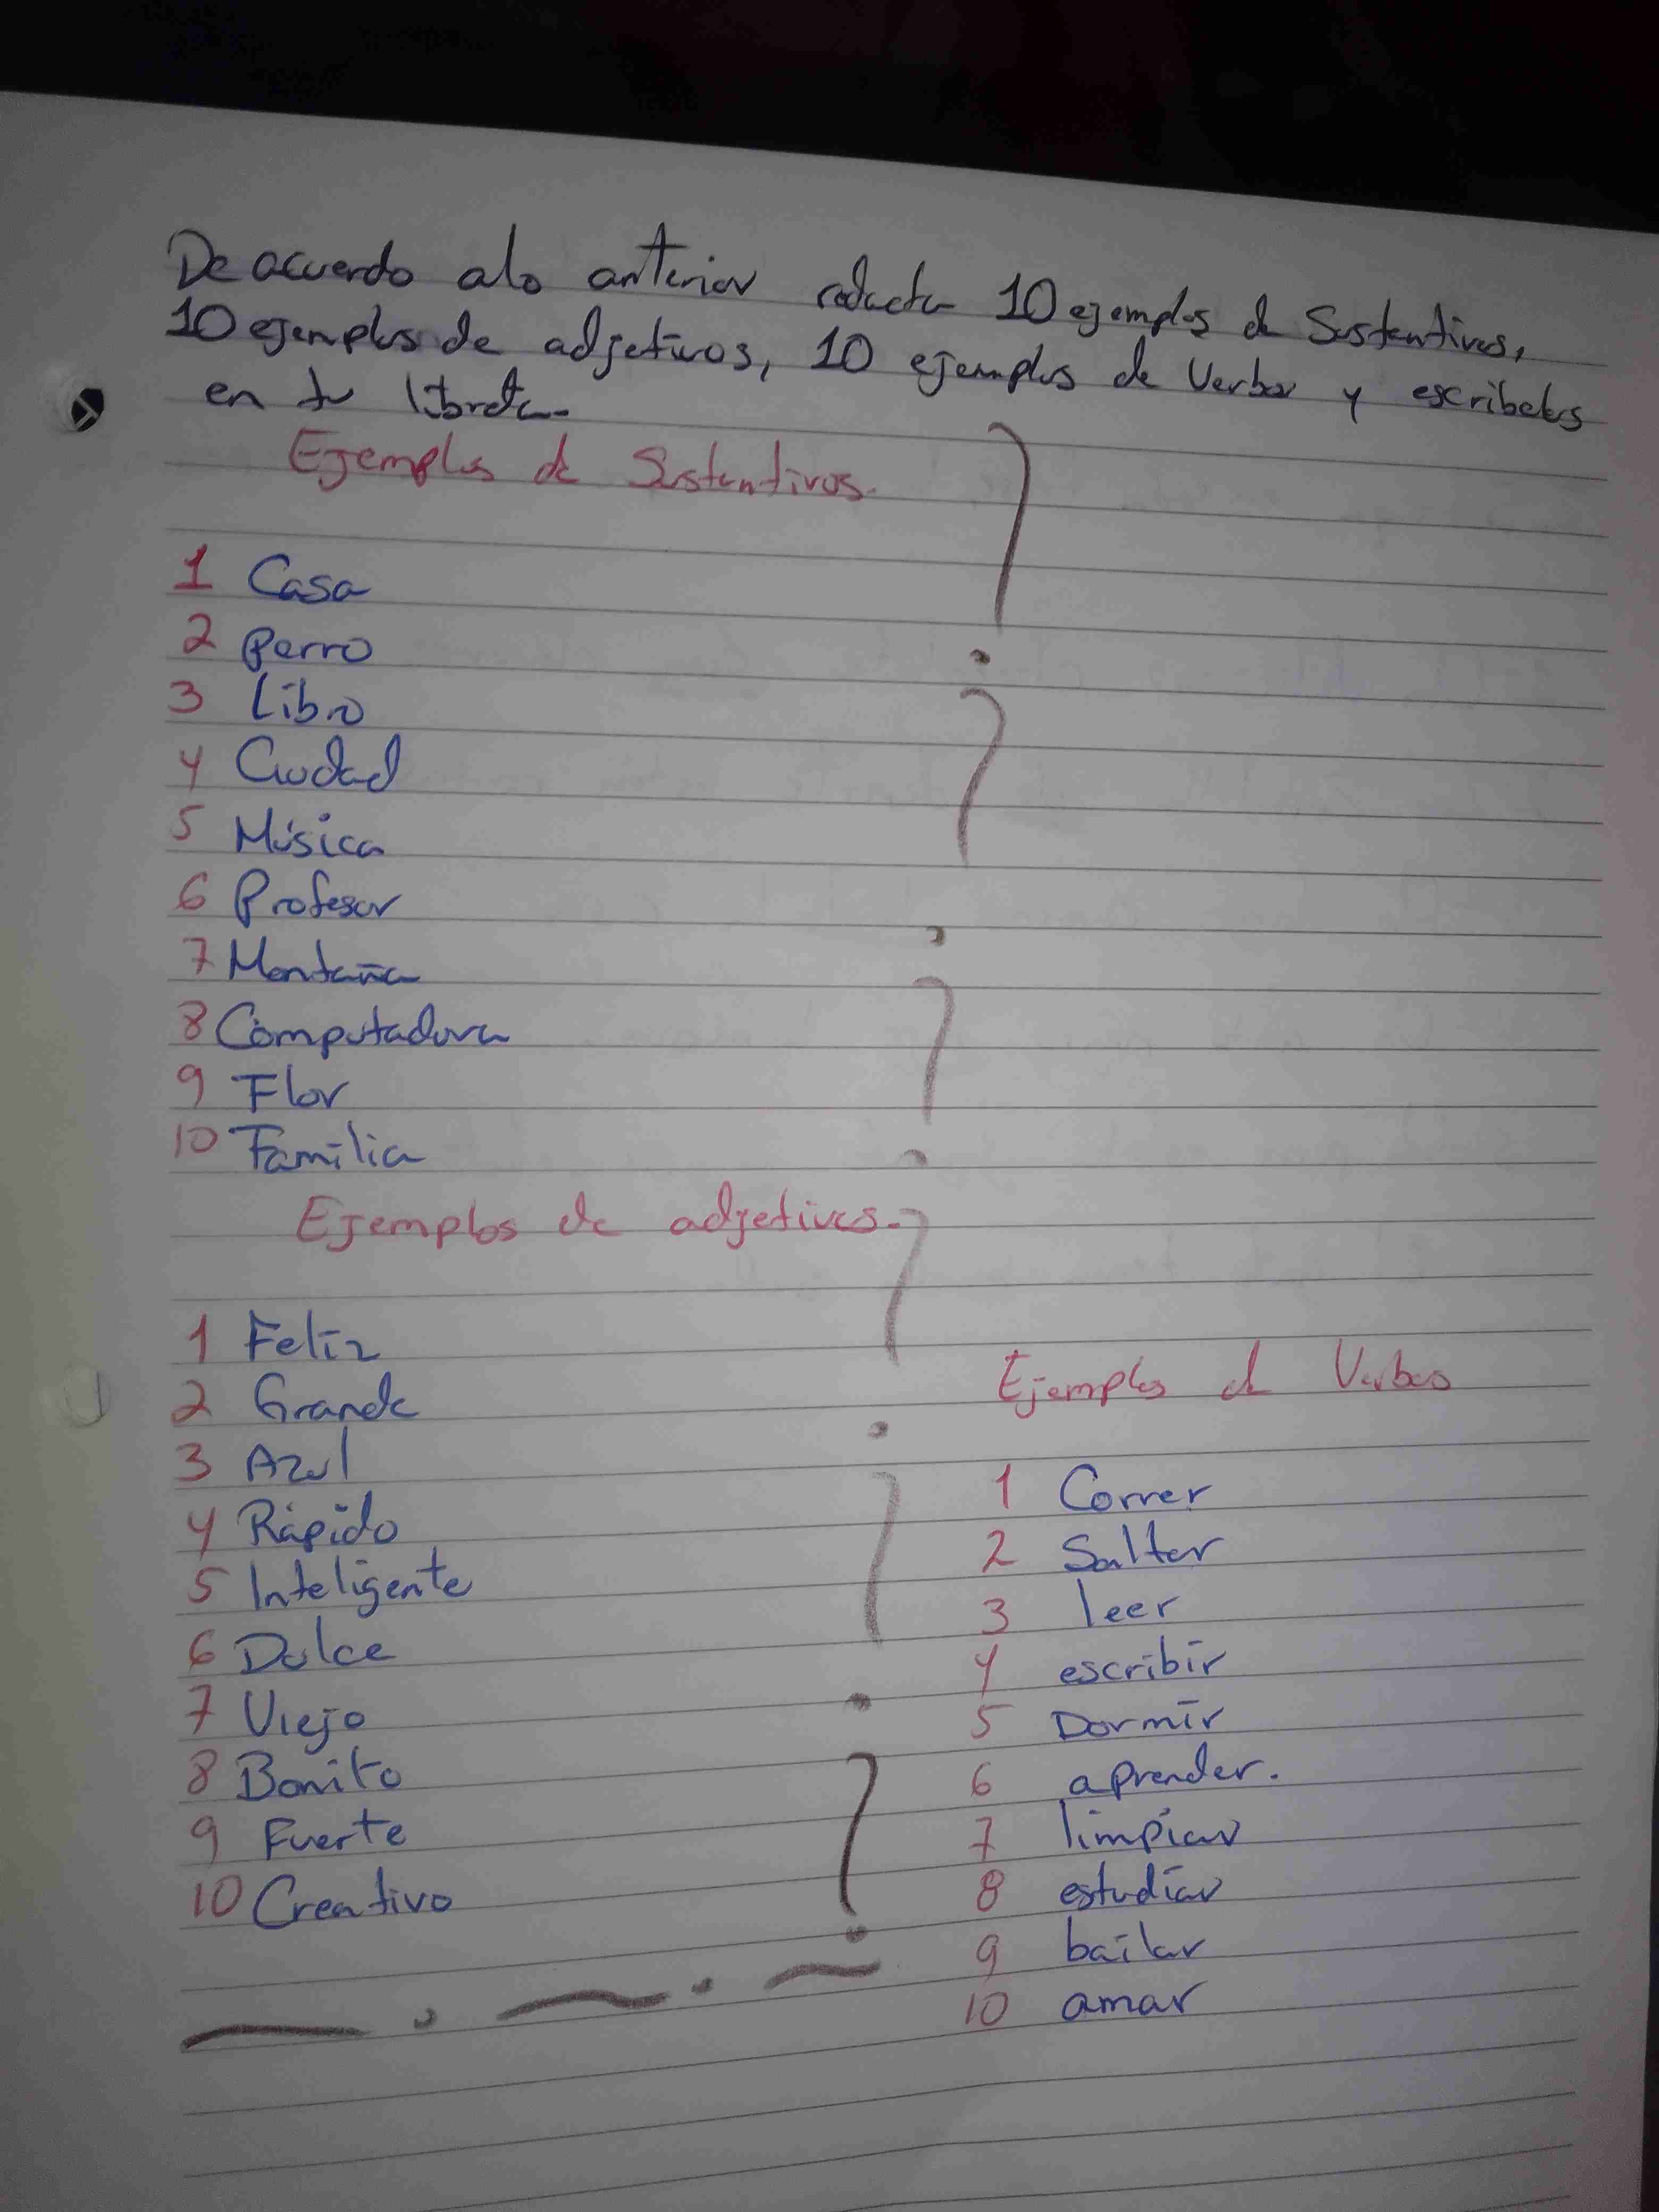 De acuerdo alo anterior redacta 10 ejemplos de Sustantivos,
10 ejemplos de adjetivos, 10 ejemplos de Verbos y escribelos
en tu libreta.
Ejemplos de Sustantivos.
1 Casa
2 Perro
3 Libro
4 Ciudad
5 Música
6 Profesor
7 Montaña
8 Computadora
9 Flor
10 Familia
Ejemplos de adjetivos.
1 Feliz
2 Grande
3 Azul
4 Rápido
5 Inteligente
6 Dulce
7 Viejo
8 Bonito
9 Fuerte
10 Creativo
Ejemplos de Verbos
1 Correr
2 Saltar
3 leer
4 escribir
5 Dormir
6 aprender.
7 limpiar
8 estudiar
9 bailar
10 amar